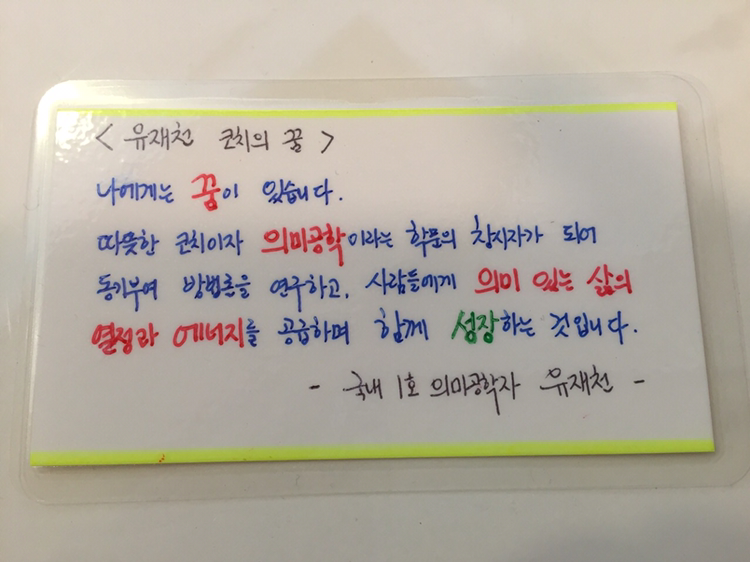 < 유재천 코치의 꿈 >
나에게는 꿈이 있습니다.
따뜻한 코치이자 의미공학이라는 학문의 창시자가 되어
동기부여 방법론을 연구하고, 사람들에게 의미 있는 삶의
열정과 에너지를 공급하며 함께 성장하는 것입니다.
- 국내 1호 의미공학자 유재천 -